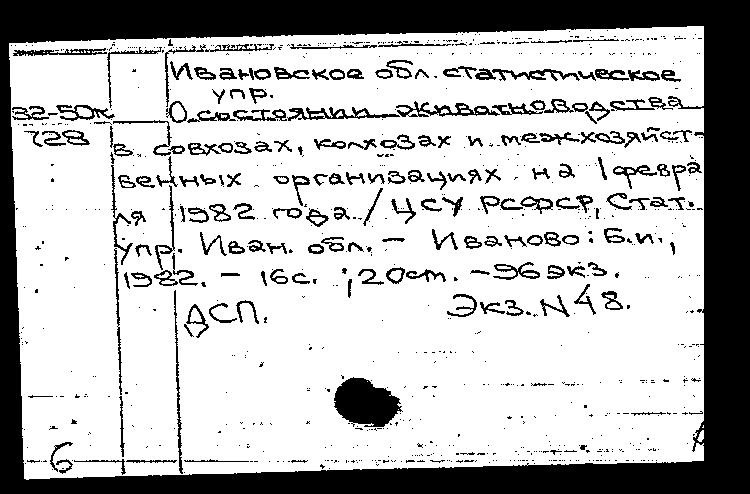 Ивановское обл. статистическое
упр.
82-50к О состоянии животноводства
728 в совхозах, колхозах и межхозяйст-
венных организациях на 1 февра
ля 1982 года / ЦСУ РСФСР, Стат.
упр. Иван. обл. – Иваново: Б.и.,
1982. – 16с. ; 20см. – 96 экз.
ДСП. Экз. N 48.
6